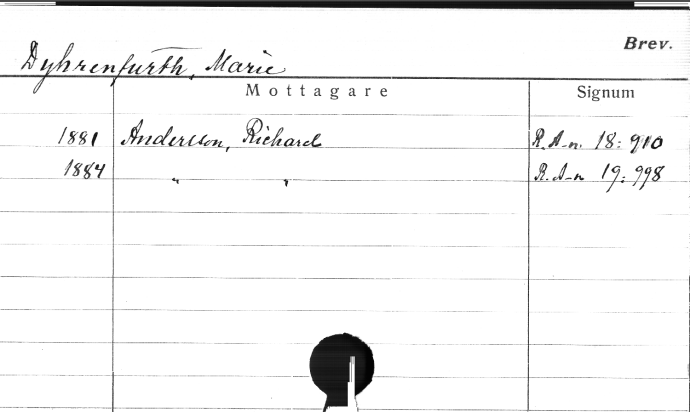 Brev.
Dyhrenfurth, Marie
Mottagare Signum
1881 Andersson, Richard R. A-n. 18: 910
1884 " " R. A-n 19: 998